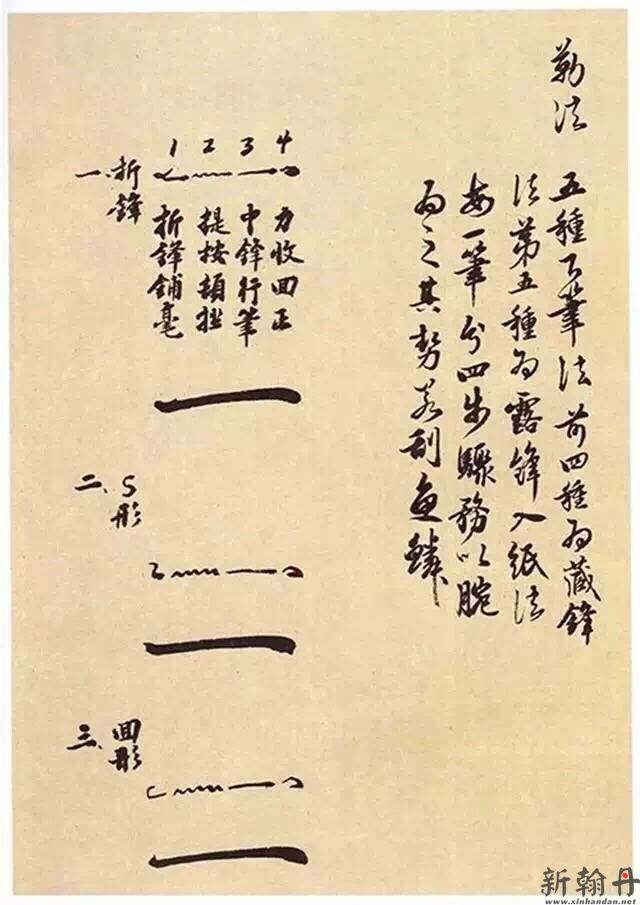 勒法
五種下筆法前四種為藏鋒
法第五種為露鋒入紙法
每一筆分四步驟務以腕
為之其勢若刮魚鱗
1 2 3 4
一、折鋒
力收回正
中鋒行筆
提按頓挫
折鋒鋪毫
二、S形
三、回形
新翰丹
www.xinhandan.net